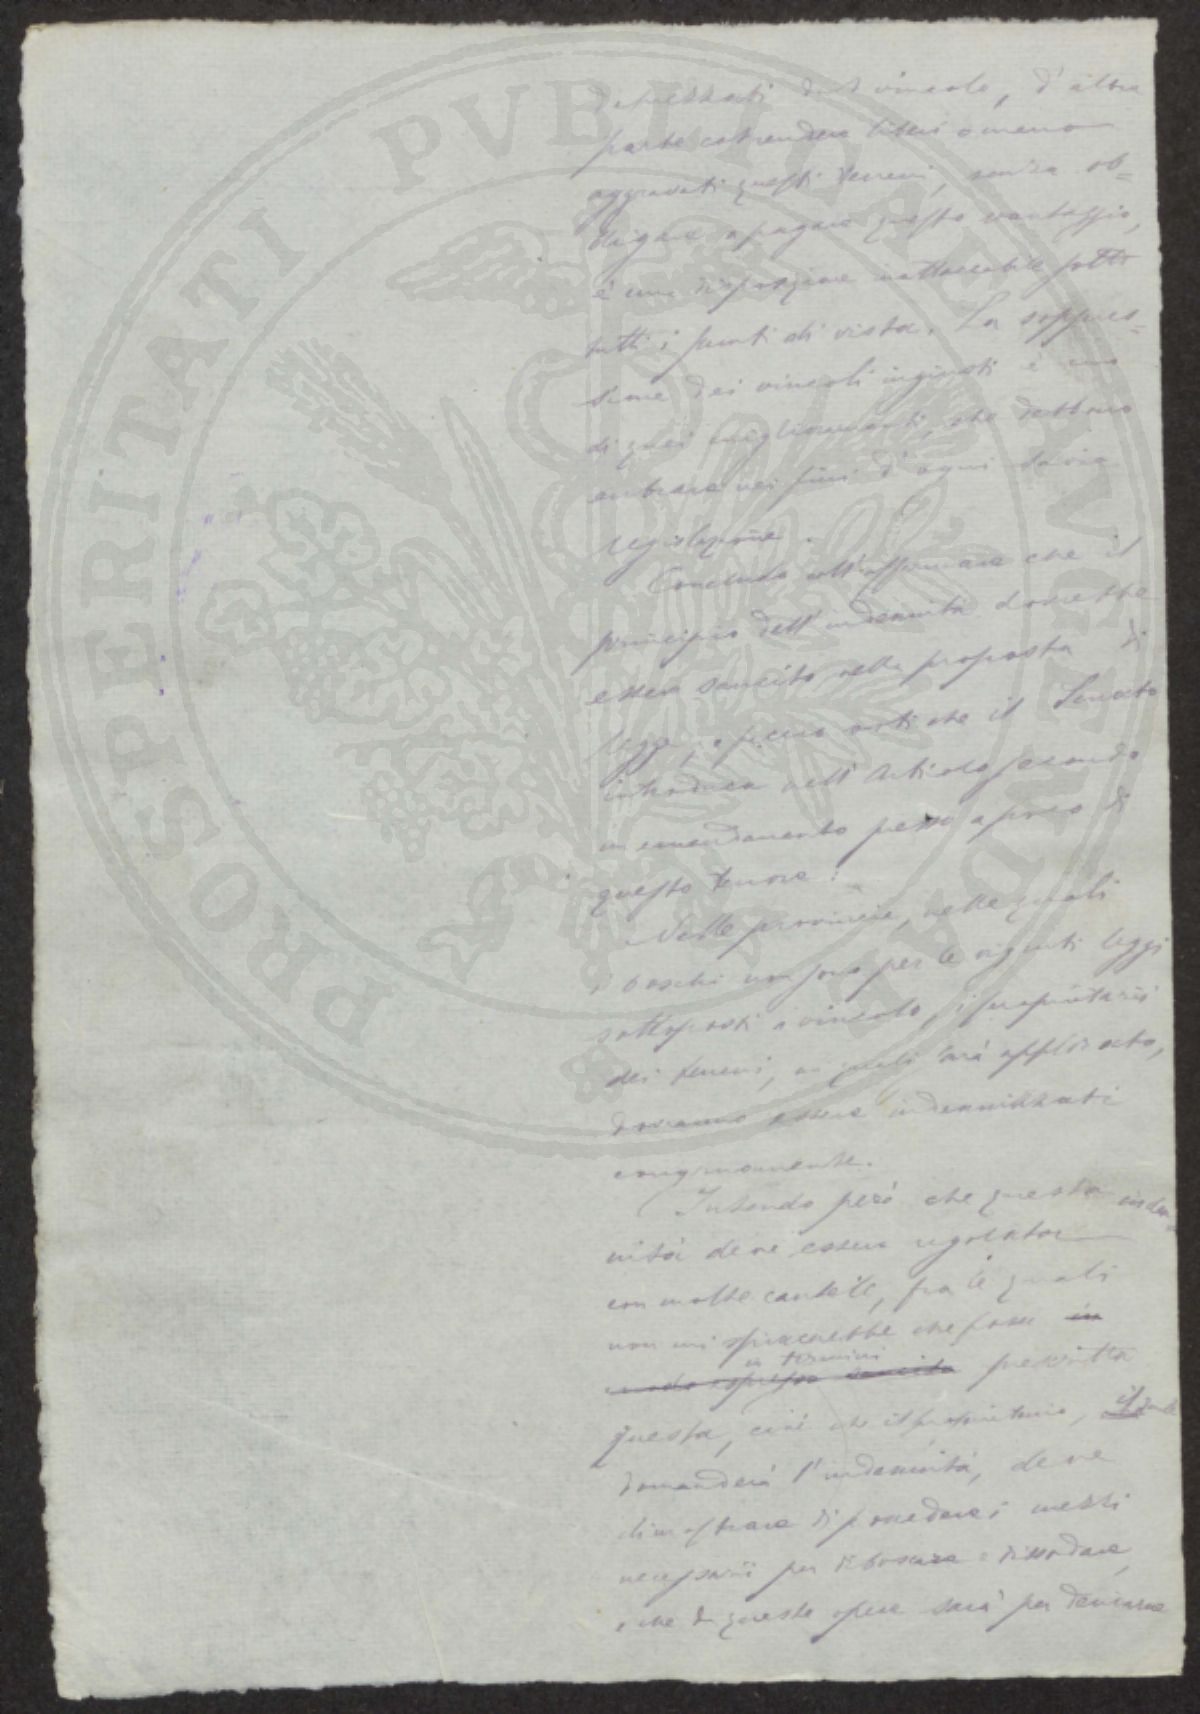 PROSPERITATI PVBLICAE AVGENDAE
deprezzati dal vincolo, d'altra
parte col rendere liberi o meno
aggravati questi terreni, senza ob=
bligare a pagare questo vantaggio,
è una disposizione inattaccabile sotto
tutti i punti di vista. La soppres=
sione dei vincoli ingiusti è uno
di quei miglioramenti, che debbono
entrare nei fini d'ogni savia
legislazione.
Concludo coll'affermare che il
principio dell'indennità dovrebbe
essere sancito nella proposta di
legge, e faccio voti che il Senato
introduca nell'Articolo secondo
un emendamento presso a poco di
questo tenore:
Nelle provincie, nelle quali
i boschi non sono per le vigenti leggi
sottoposti a vincolo, i proprietarii
dei terreni, ai quali sarà applicato,
dovranno essere indennizzati
congruamente.
Intendo però che questa inden=
nità deve essere regolata
con molte cautele, fra le quali
non mi spiacerebbe che fosse in
in termini
modo espresso sancita prescritta
questa, cioè che il proprietario, il quale
domanderà l'indennità, deve
dimostrare di possedere i mezzi
necessarii per disboscare e dissodare,
e che da queste opere sarà per derivarne